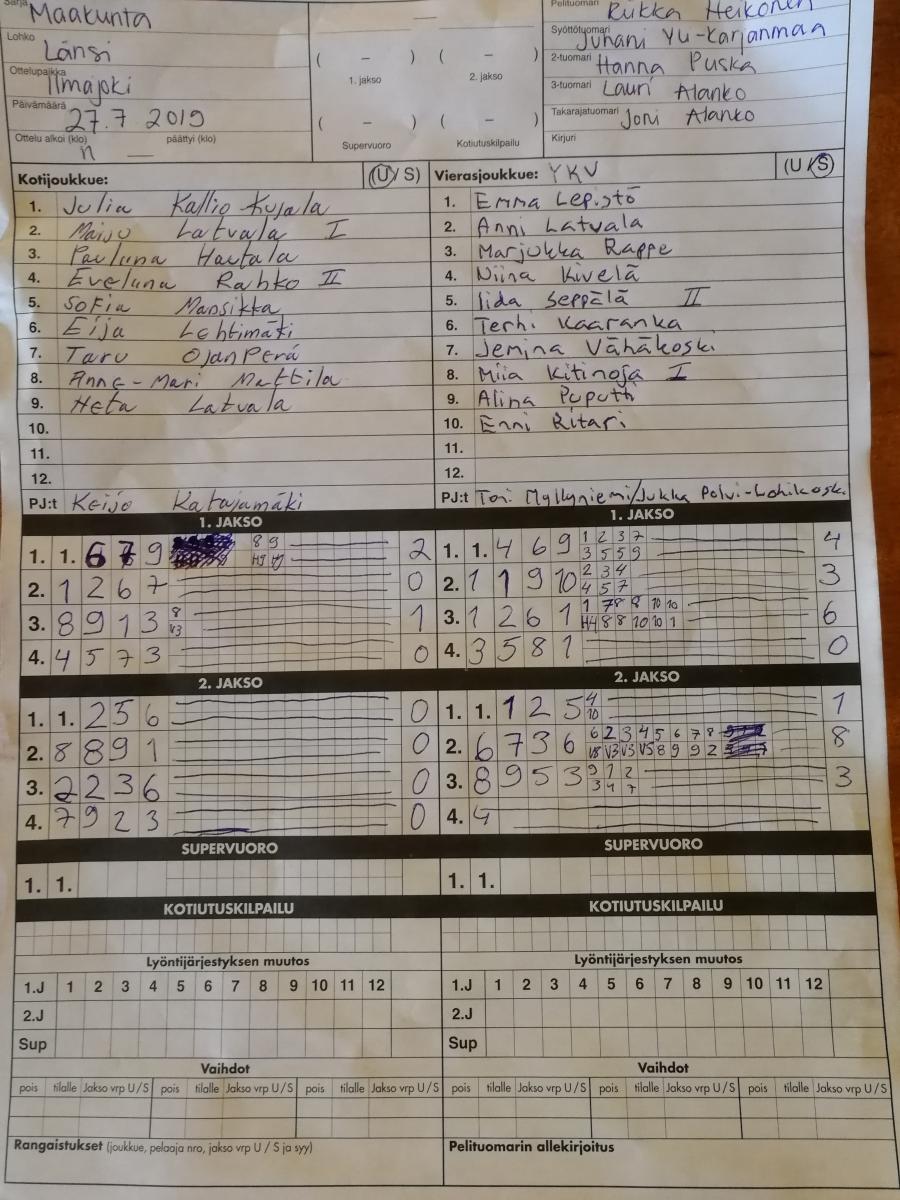 Sarja
Maakunta
Lohko
Länsi
Ottelupaikka
Ilmajoki
Päivämäärä
27.7 2019
Ottelu alkoi (klo) päättyi (klo)
—
( – ) ( – )
1. jakso 2. jakso
( – ) ( – )
Supervuoro Kotiutuskilpailu
Pelituomari
Riikka Heikonen
Syöttötuomari
Juhani Yli-Karjanmaa
2-tuomari Hanna Puska
3-tuomari Lauri Alanko
Takarajatuomari Joni Alanko
Kirjuri
Kotijoukkue: (U/S)
1. Julia Kallio-Kujala
2. Maiju Latvala I
3. Pauliina Hautala
4. Eveliina Rahko II
5. Sofia Mansikka
6. Eija Lehtimäki
7. Taru Ojanperä
8. Anne-Mari Mattila
9. Heta Latvala
10.
11.
12.
PJ:t Keijo Katajamäki
Vierasjoukkue: YKV (U/S)
1. Emma Lepistö
2. Anni Latvala
3. Marjukka Rappe
4. Niina Kivelä
5. Iida Seppälä II
6. Terhi Kaaranka
7. Jemina Vähäkoski
8. Miia Kitinoja I
9. Alina Poputti
10. Enni Ritari
11.
12.
PJ:t Toni Myllyniemi/Jukka Polvi-Lohikoski
1. JAKSO
1. 1. 6 7 9 8 9 2
HJ HJ
2. 1 2 6 7 0
3. 8 9 1 3 8 1
V3
4. 4 5 7 3 0
1. JAKSO
1. 1. 4 6 9 1 2 3 7 4
3 5 5 9
2. 1 1 9 10 2 3 4 3
4 5 7
3. 1 2 6 1 1 7 8 9 10 10 6
H4 8 8 10 10 1
4. 3 5 8 1 0
2. JAKSO
1. 1. 2 5 6 0
2. 8 8 9 1 0
3. 2 2 3 6 0
4. 7 9 2 3 0
2. JAKSO
1. 1. 1 2 5 4 1
10
2. 6 7 3 6 6 2 3 4 5 6 7 8 8
V8 V3 V3 V5 8 9 9 2
3. 8 9 5 3 9 1 2 3
3 4 7
4. 4
SUPERVUORO
1. 1.
SUPERVUORO
1. 1.
KOTIUTUSKILPAILU
KOTIUTUSKILPAILU
Lyöntijärjestyksen muutos
1.J 1 2 3 4 5 6 7 8 9 10 11 12
2.J
Sup
Lyöntijärjestyksen muutos
1.J 1 2 3 4 5 6 7 8 9 10 11 12
2.J
Sup
Vaihdot
pois tilalle Jakso vrp U/S pois tilalle Jakso vrp U/S pois tilalle Jakso vrp U/S
Vaihdot
pois tilalle Jakso vrp U/S pois tilalle Jakso vrp U/S pois tilalle Jakso vrp U/S
Rangaistukset (joukkue, pelaaja nro, jakso vrp U / S ja syy)
Pelituomarin allekirjoitus